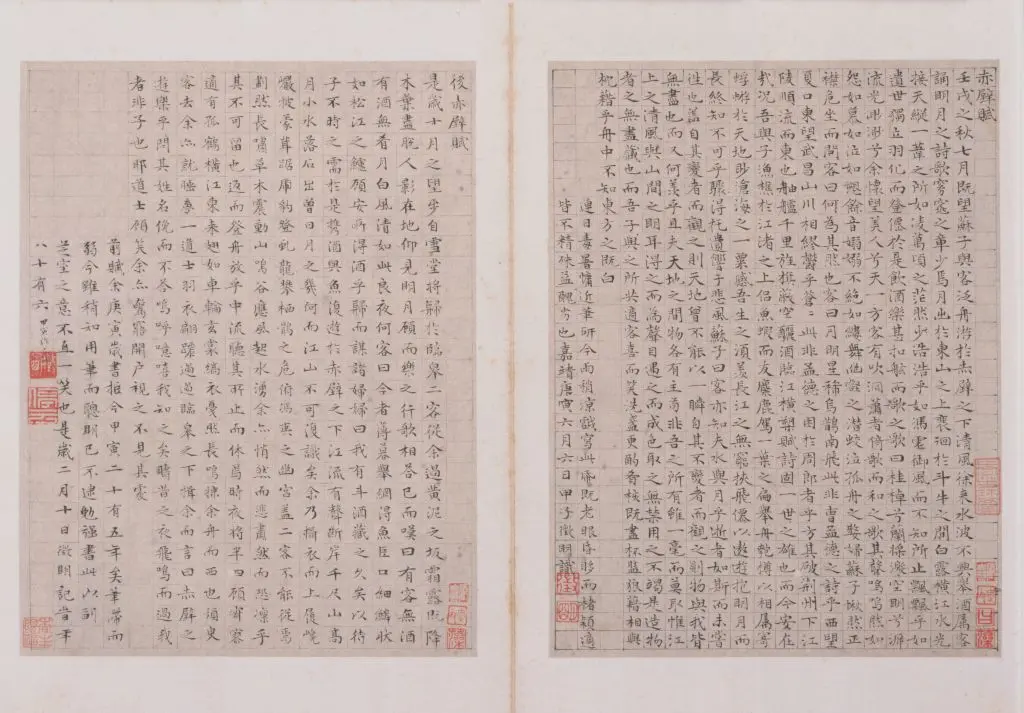 赤壁賦
壬戌之秋七月既望蘇子與客泛舟游於赤壁之下清風徐來水波不興舉酒屬客
誦明月之詩歌窈窕之章少焉月出於東山之上裵洄於斗牛之間白露橫江水光
接天縱一葦之所如凌萬頃之茫然少浩浩乎如馮虛御風而不知所止飄飄乎如
遺世獨立羽化而登僊於是飲酒樂甚扣舷而歌之歌曰桂棹兮蘭槳擊空明兮泝
流光渺渺兮余懷望美人兮天一方客有吹洞簫者倚歌而和之其聲嗚嗚然如
怨如慕如泣如愬餘音嫋嫋不絕如縷舞幽壑之潛蛟泣孤舟之嫠婦蘇子愀然正
襟危坐而問客曰何為其然也客曰月明星稀烏鵲南飛此非曹孟德之詩乎西望
夏口東望武昌山川相繆鬱乎蒼蒼此非孟德之困於周郎者乎方其破荊州下江
陵順流而東也舳艫千里旌旗蔽空釃酒臨江橫槊賦詩固一世之雄也而今安在
哉況吾與子漁樵於江渚之上侶魚蝦而友麋鹿駕一葉之扁舟舉匏樽以相屬寄
蜉蝣於天地眇滄海之一粟感吾生之須臾羨長江之無窮挾飛僊以遨遊抱明月而
長終知不可乎驟得托遺響于悲風蘇子曰客亦知夫水與月乎逝者如斯而未嘗
往也蓋自其變者而觀之則天地曾不能以一瞬自其不變者而觀之則物與我皆
無盡也而又何羨乎且夫天地之間物各有主苟非吾之所有雖一毫而莫取惟江
上之清風與山間之明耳得之而為聲目遇之而成色取之無禁用之不竭是造物
者之無盡藏也而吾子與之所共適客喜而笑洗盞更酌肴核既盡杯盤狼藉相與
枕藉乎舟中不知東方之既白
連日毒暑慵近筆研今雨稍涼戲寫此既老眼昏眵而楮穎適
皆不精殊益醜劣也嘉靖庚寅六月六日甲子徵明識
後赤壁賦
是歲十月之望步自雪堂將歸於臨皋二客從余過黃泥之坂霜露既降
木葉盡脫人影在地仰見明月顧而樂之行歌相答已而嘆曰有客無酒
有酒無肴月白風清如此良夜何客曰今者薄暮舉網得魚巨口細鱗狀
如松江之鱸顧安所得酒乎歸而謀諸婦婦曰我有斗酒藏之久矣以待
子不時之需於是攜酒與魚復遊於赤壁之下江流有聲斷岸千尺山高
月小水落石出曾日月之幾何而江山不可復識矣余乃攝衣而上履巉
巖披蒙茸踞虎豹登虬龍攀栖鶻之危俯馮夷之幽宮蓋二客不能從焉
劃然長嘯草木震動山鳴谷應風起水湧余亦悄然而悲肅然而恐凜乎
其不可留也返而登舟放乎中流聽其所止而休焉時夜將半四顧寂寥
適有孤鶴橫江東來翅如車輪玄裳縞衣戛然長鳴掠余舟而西也須臾
客去余亦就睡夢一道士羽衣翩躚過臨皋之下揖余而言曰赤壁之
遊樂乎問其姓名俛而不答嗚呼噫嘻我知之矣疇昔之夜飛鳴而過我
者非子也耶道士顧笑余亦驚寤開戶視之不見其處
前賦余庚寅歲書抵今甲寅二十有五年矣筆滯而
弱今雖稍知用筆而聰明已不逮勉強書此以副
芝室之意不直一笑也是歲二月十日徵明記時年
八十有六